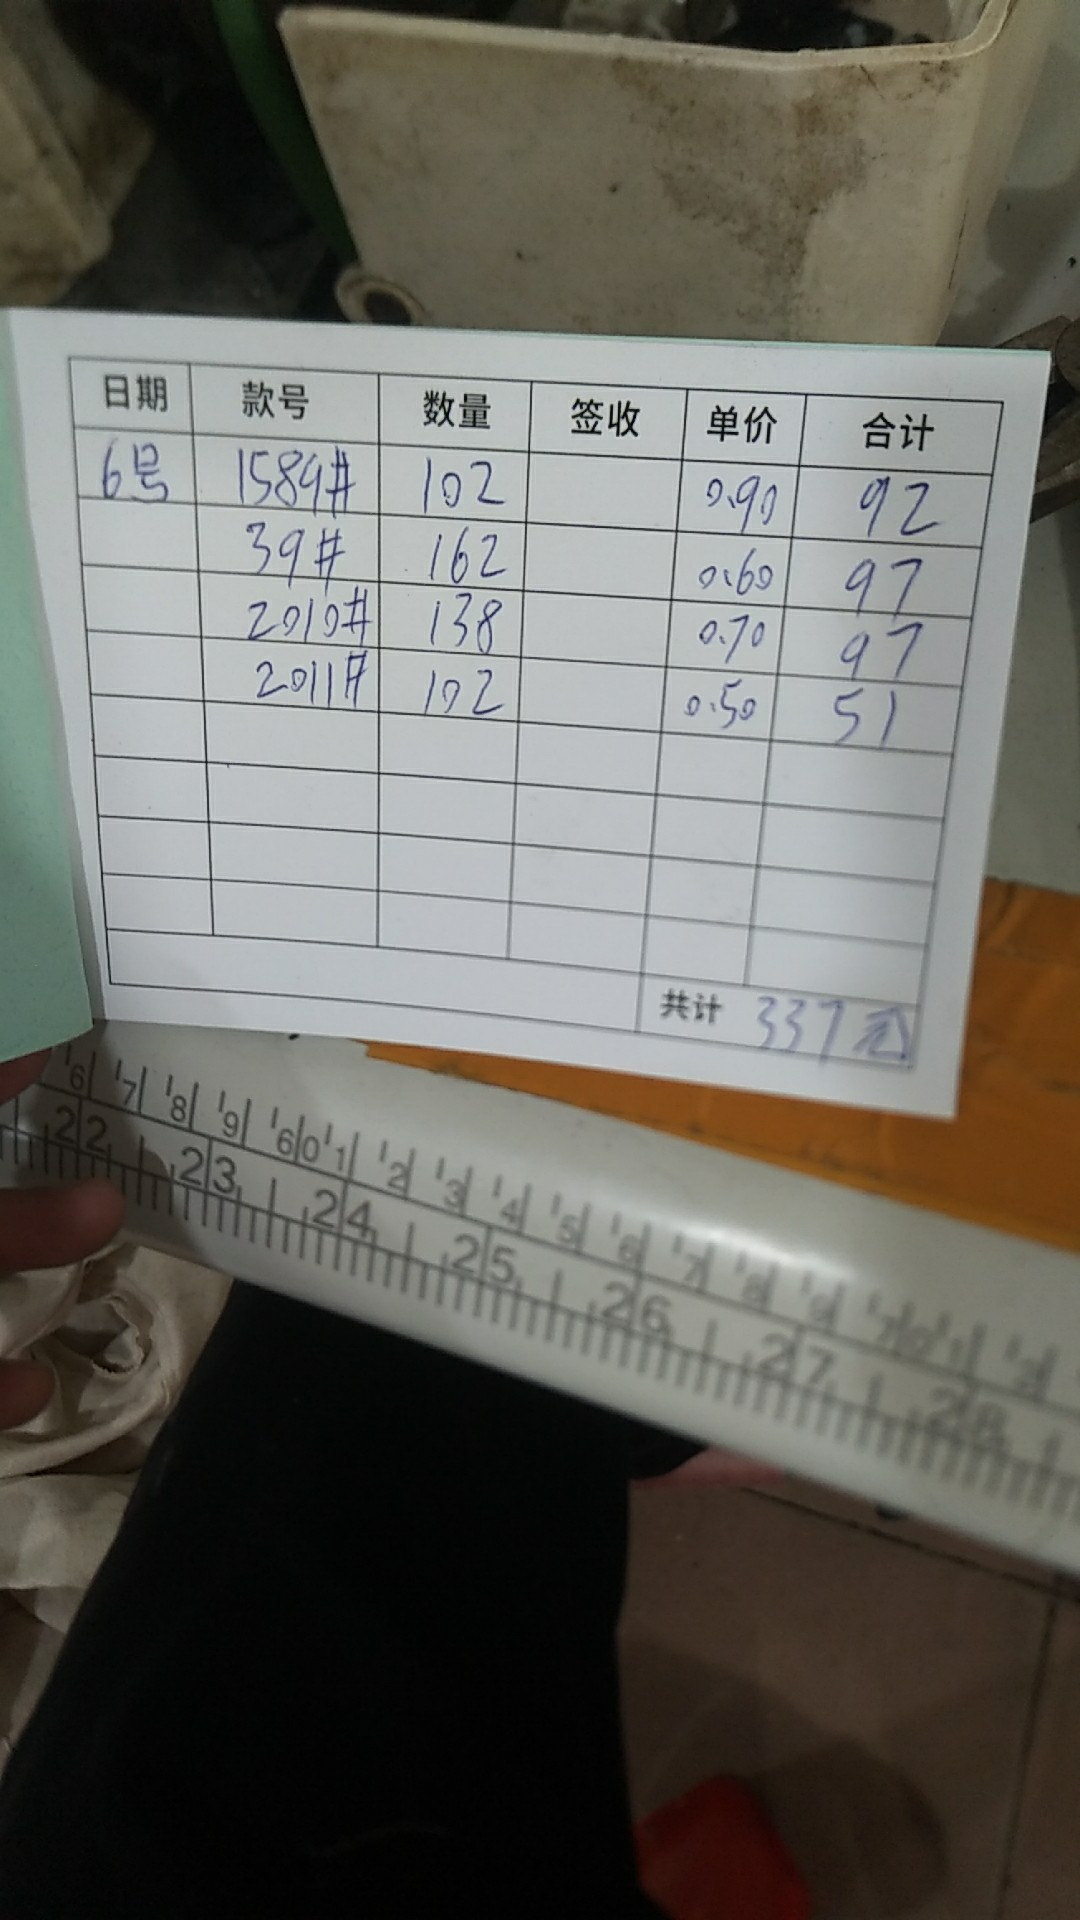 日期 款号 数量 签收 单价 合计
6号 1589# 102 0.90 92
39# 162 0.60 97
2010# 138 0.70 97
2011# 102 0.50 51
共计 337元
6 7 8 9 60 1 2 3 4 5 6 7 8 9 70 1 2
22 23 24 25 26 27 28